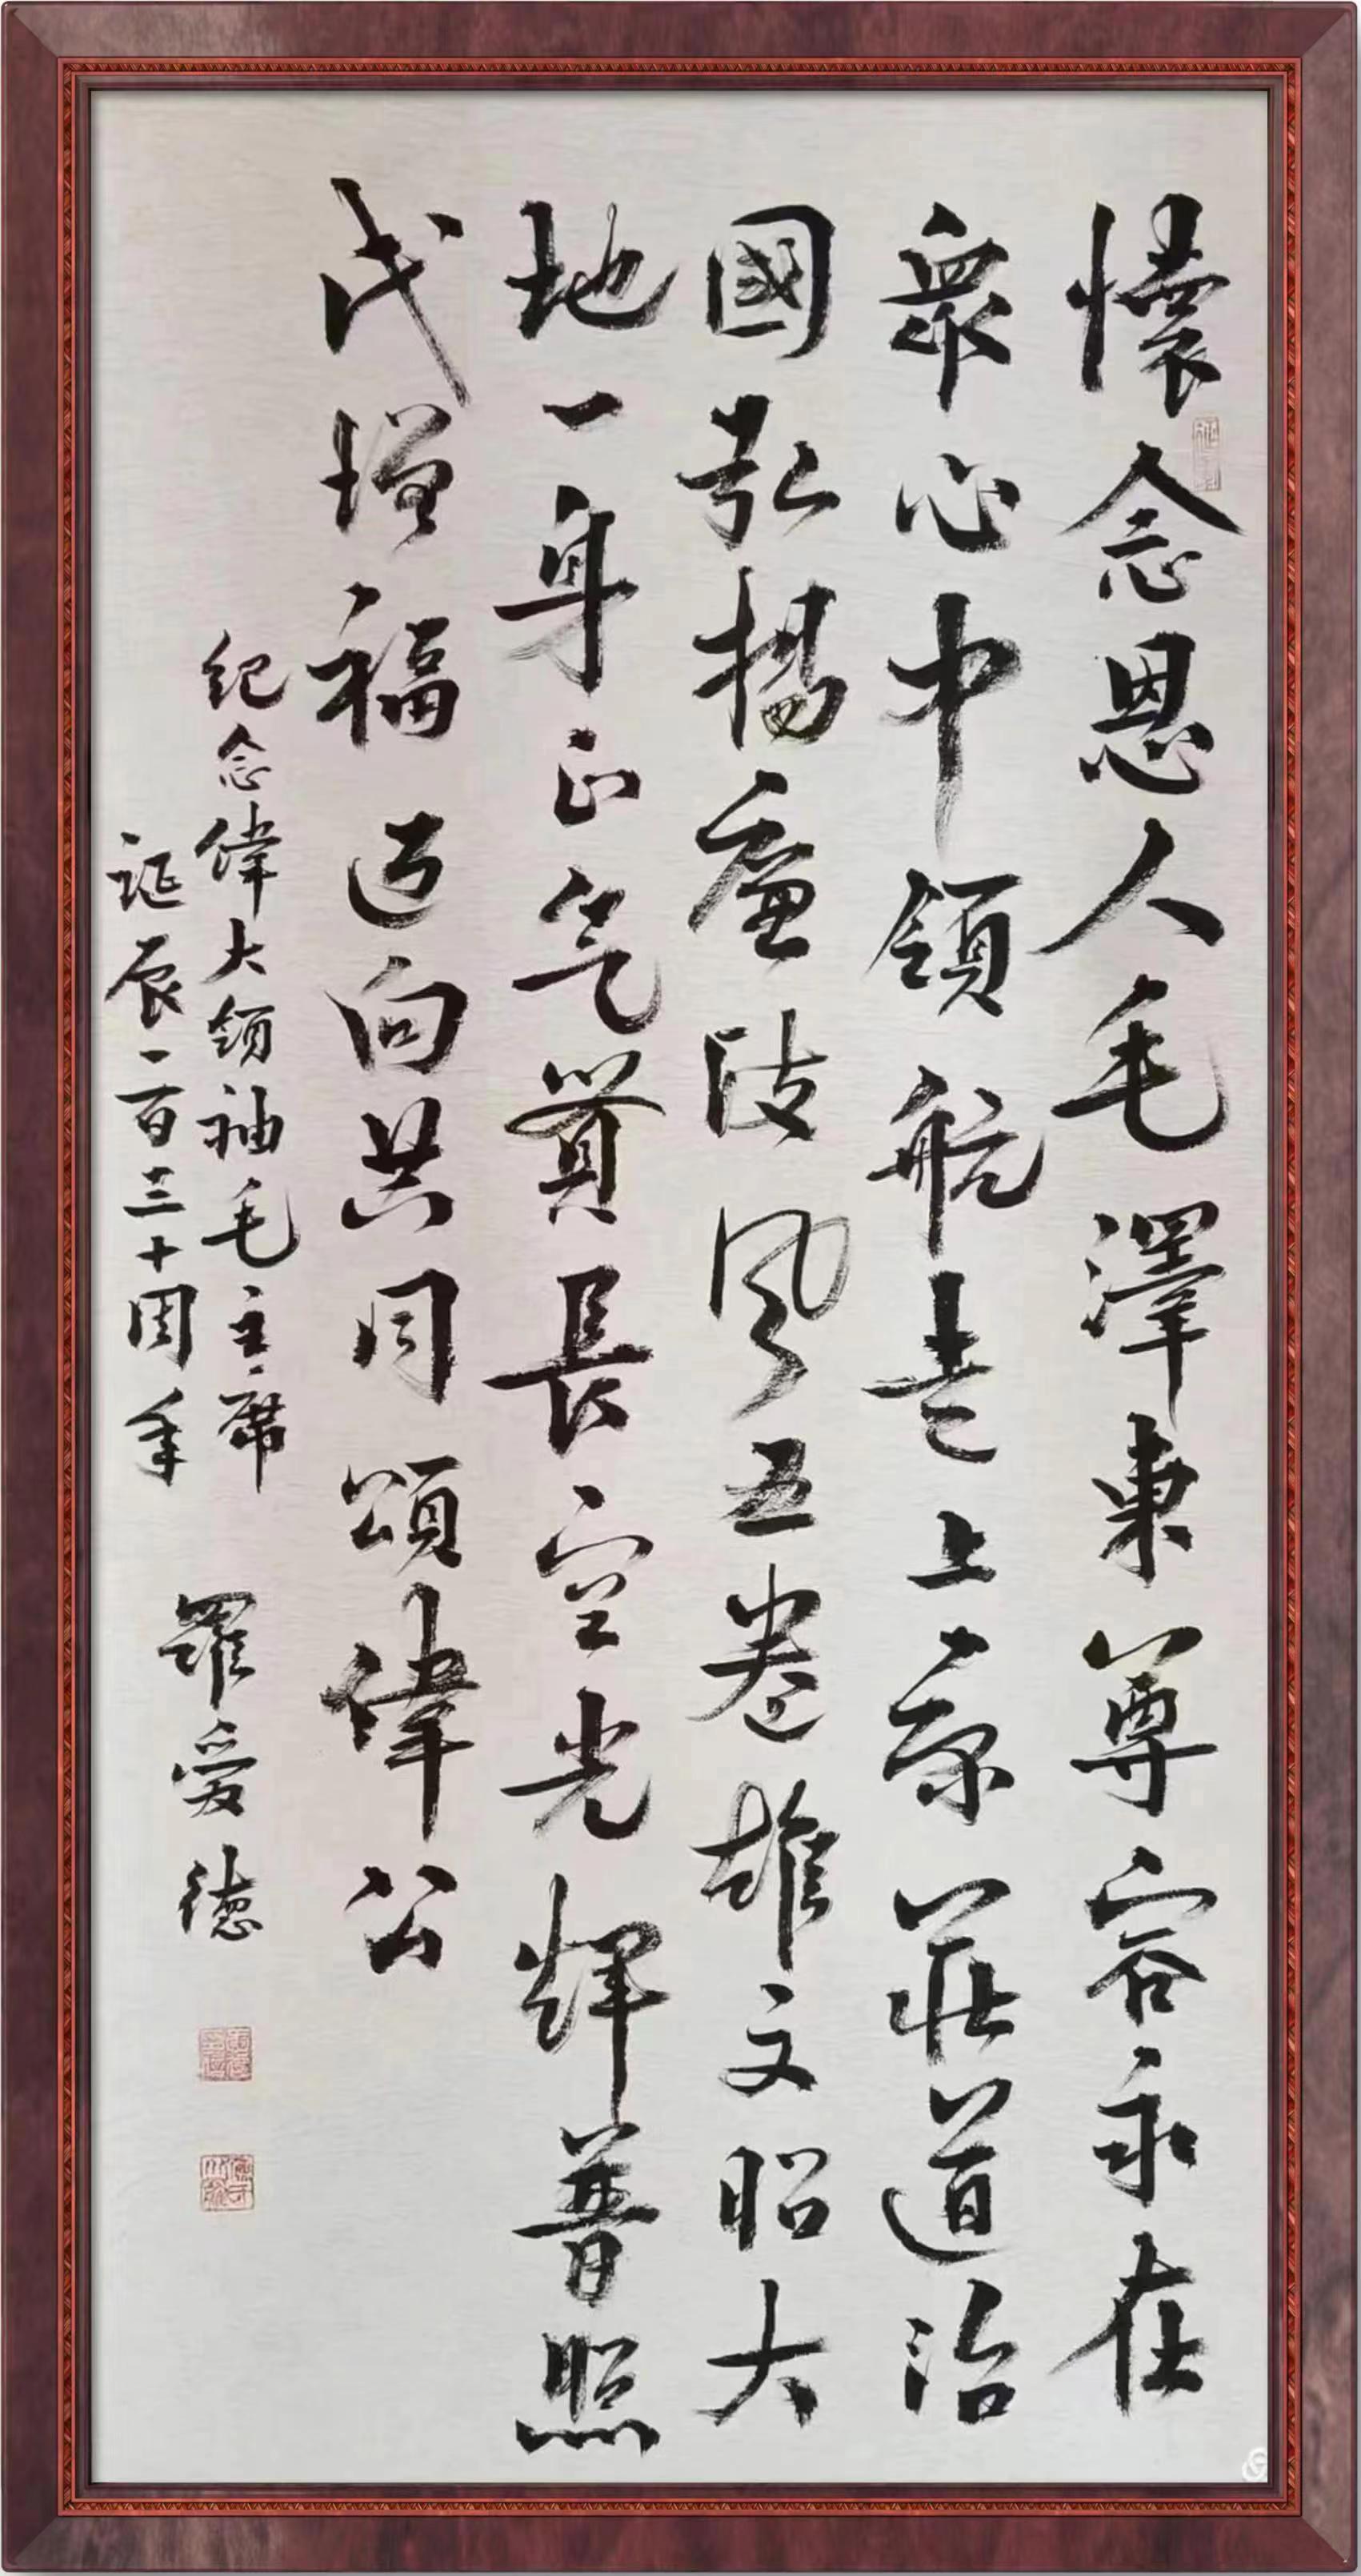 懷念恩人毛澤東尊容永在
眾心中領航走上康莊道治
國弘揚廉政風五卷雄文昭大
地一身正气貫長空光輝普照
民增福迈向共同頌偉公
紀念偉大領袖毛主席
誕辰一百三十周年
羅愛德